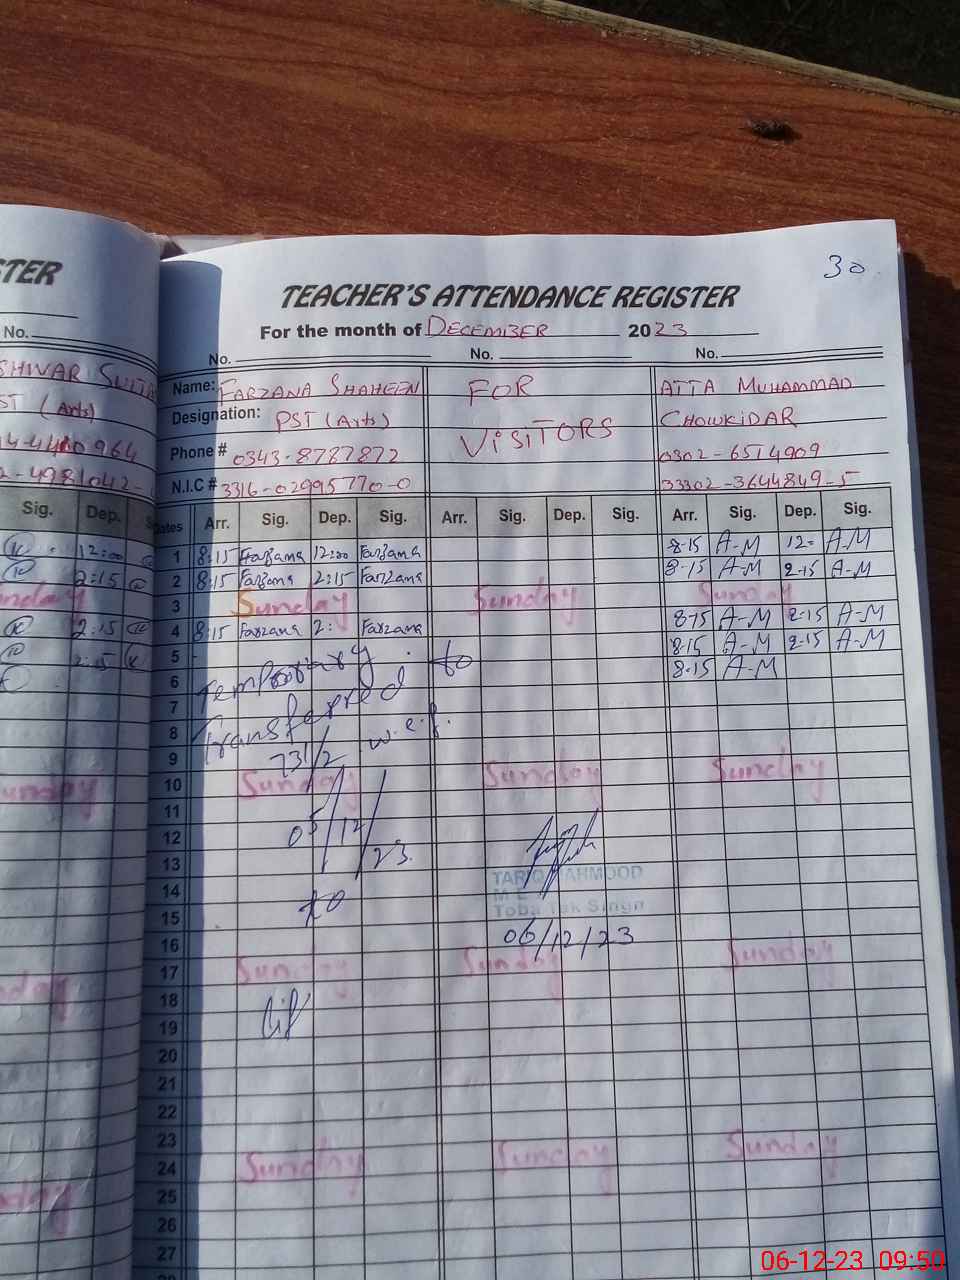 30
STER
TEACHER'S ATTENDANCE REGISTER
For the month of DECEMBER 2023
No.
No. No. No.
Name: FARZANA SHAHEEN FOR ATTA MUHAMMAD
Designation: PST (Arts) VISITORS CHOWKIDAR
ST (Arts)
Phone # 0343-8787872 0302-6514909
N.I.C # 3316-02995770-0 33302-3644849-5
Sig. Dep.
Dates Arr. Sig. Dep. Sig. Arr. Sig. Dep. Sig. Arr. Sig. Dep. Sig.
12:00 1 8:15 Farzana 12:00 Farzana 8-15 A-M 12- A-M
2:15 2 8:15 Farzana 2:15 Farzana 8-15 A-M 2-15 A-M
3 Sunday Sunday Sunday
2:15 4 8:15 Farzana 2: Farzana 8-15 A-M 2-15 A-M
2:15 5 - 8-15 A-M 2-15 A-M
6 8-15 A-M
Temporary to
7
Transferred
8
w.e.f.
9
731/2
10 Sunday Sunday Sunday
11
12
05/12/23
13
14
TARIQ MAHMOOD
to
15
Toba Tek Singh
16
06/12/23
17 Sunday Sunday Sunday
18
19
20
21
22
23
24 Sunday Sunday Sunday
25
26
27
06-12-23 09:50